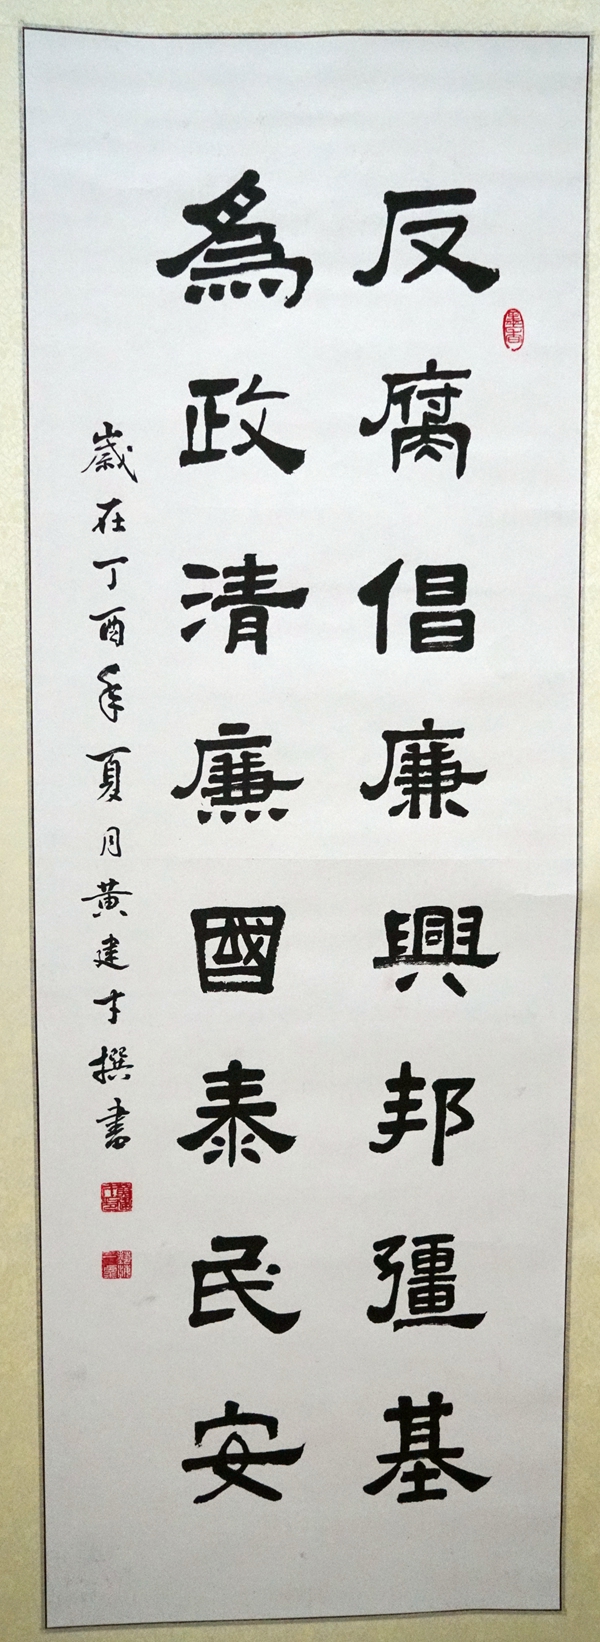 反腐倡廉興邦疆基
為政清廉國泰民安
歲在丁酉年夏月黄建才撰書